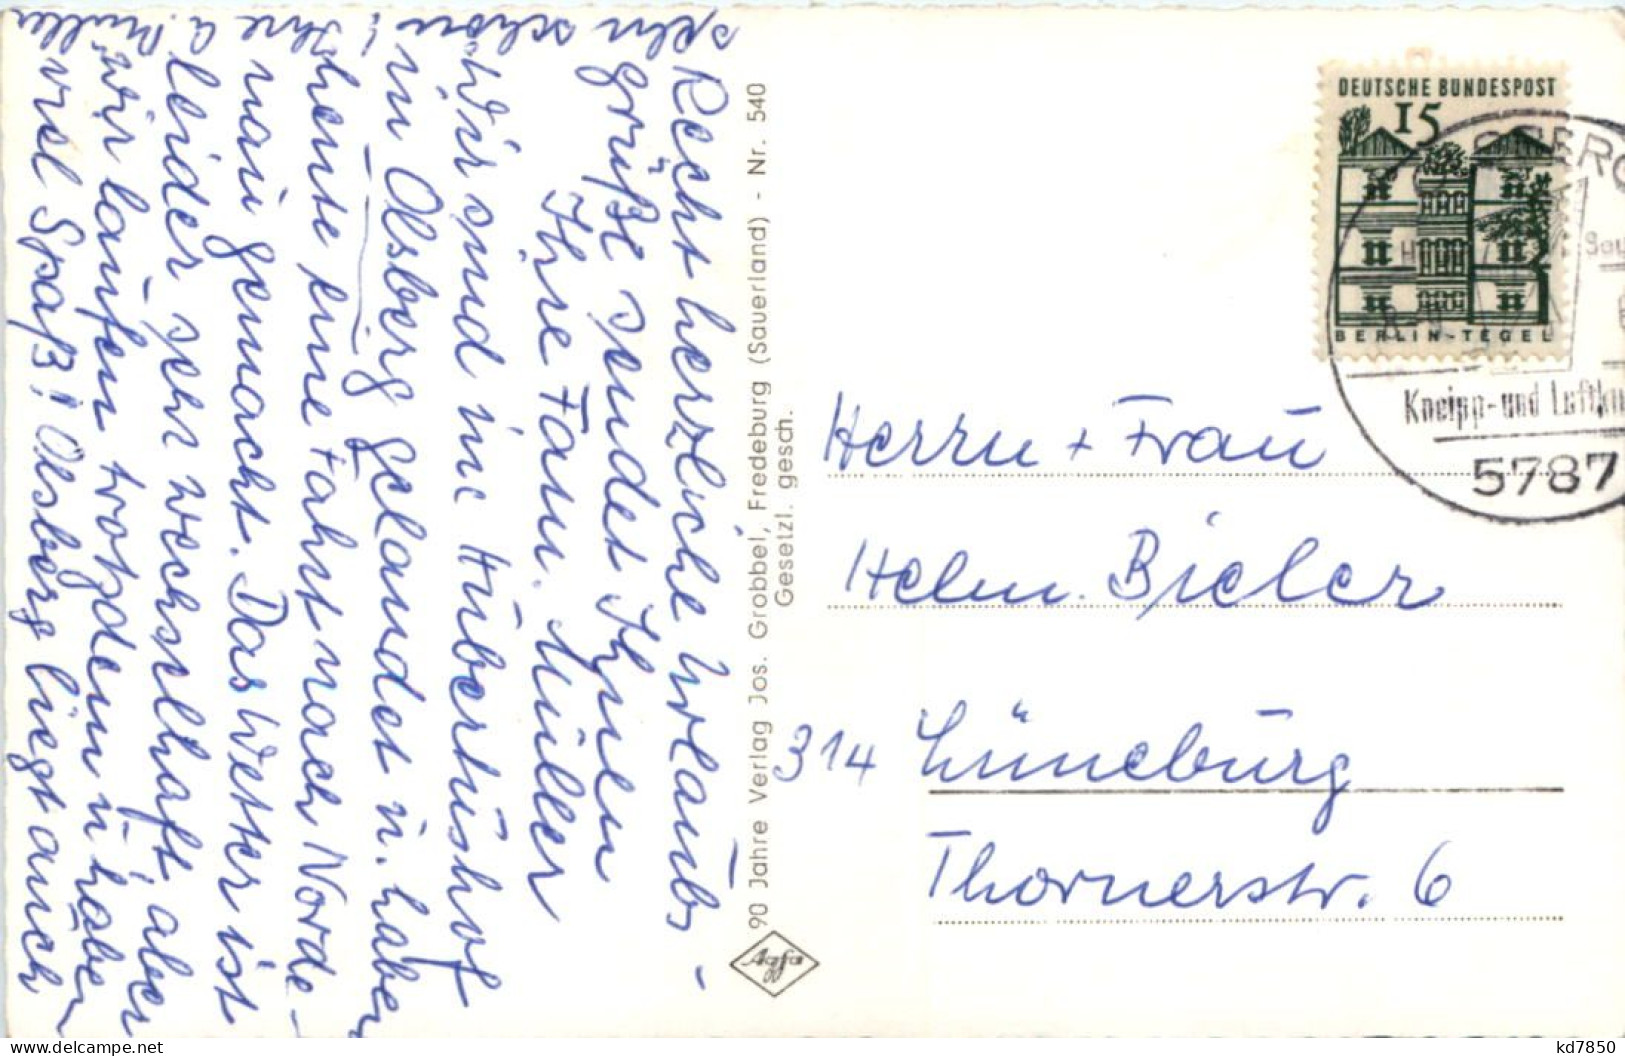 Recht herzliche Urlaubs-
grüße sendet Ihnen
Ihre Fam. Müller
Wir sind im Hubertushof
in Olsberg gelandet u. haben
heute eine Fahrt nach Norde-
nau gemacht. Das Wetter ist
leider sehr wechselhaft aber
wir laufen trotzdem u. haben
viel Spaß! Olsberg liegt auch
schön!
Ihre
Müller
90 Jahre Verlag Jos. Grobbel, Fredeburg (Sauerland) - Nr. 540
Gesetzl. gesch.
Agfa
DEUTSCHE BUNDESPOST
15
BERLIN-TEGEL
Kneipp- und Luftku
5787
Herrn + Frau
Helm. Bieler
314 Lüneburg
Thornerstr. 6
kd7850